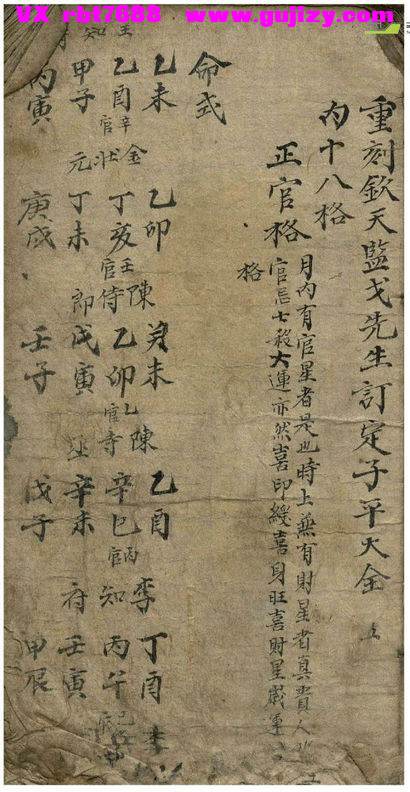 VX rbt7688 www.gujizy.com
重刻欽天監戈先生訂定子平大全
內十八格
正官格
月內有官星者是也時上兼有財星者真貴人
官忌七殺大運亦然喜印綬喜身旺喜財星歲運
格
命式
乙未 乙卯 癸未 乙酉 丁酉
金 陳 陳 李 李
乙酉 丁亥 乙卯 辛巳 丙午
辛官 壬官 乙官 丙官
狀 侍 寺 知
元 郎 丞 府
甲子 丁未 戊寅 辛未 壬寅
丙寅 庚戌 壬子 戊子 甲辰